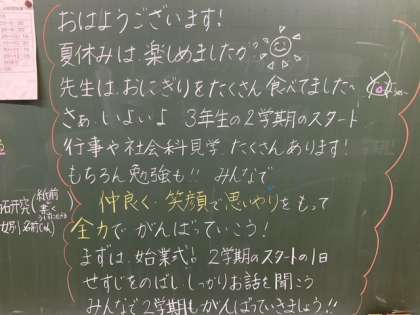 おはようございます!
夏休みは、楽しめましたか?
先生は、おにぎりをたくさん食べてました〜
さぁ、いよいよ 3年生の2学期のスタート
行事や社会科見学 たくさんあります!
もちろん勉強も!! みんなで
仲良く・笑顔で思いやりをもって
全力で がんばっていこう!
まずは、始業式! 2学期のスタートの1日
せすじをのばし、しっかりお話を聞こう
みんなで2学期もがんばっていきましょう!!